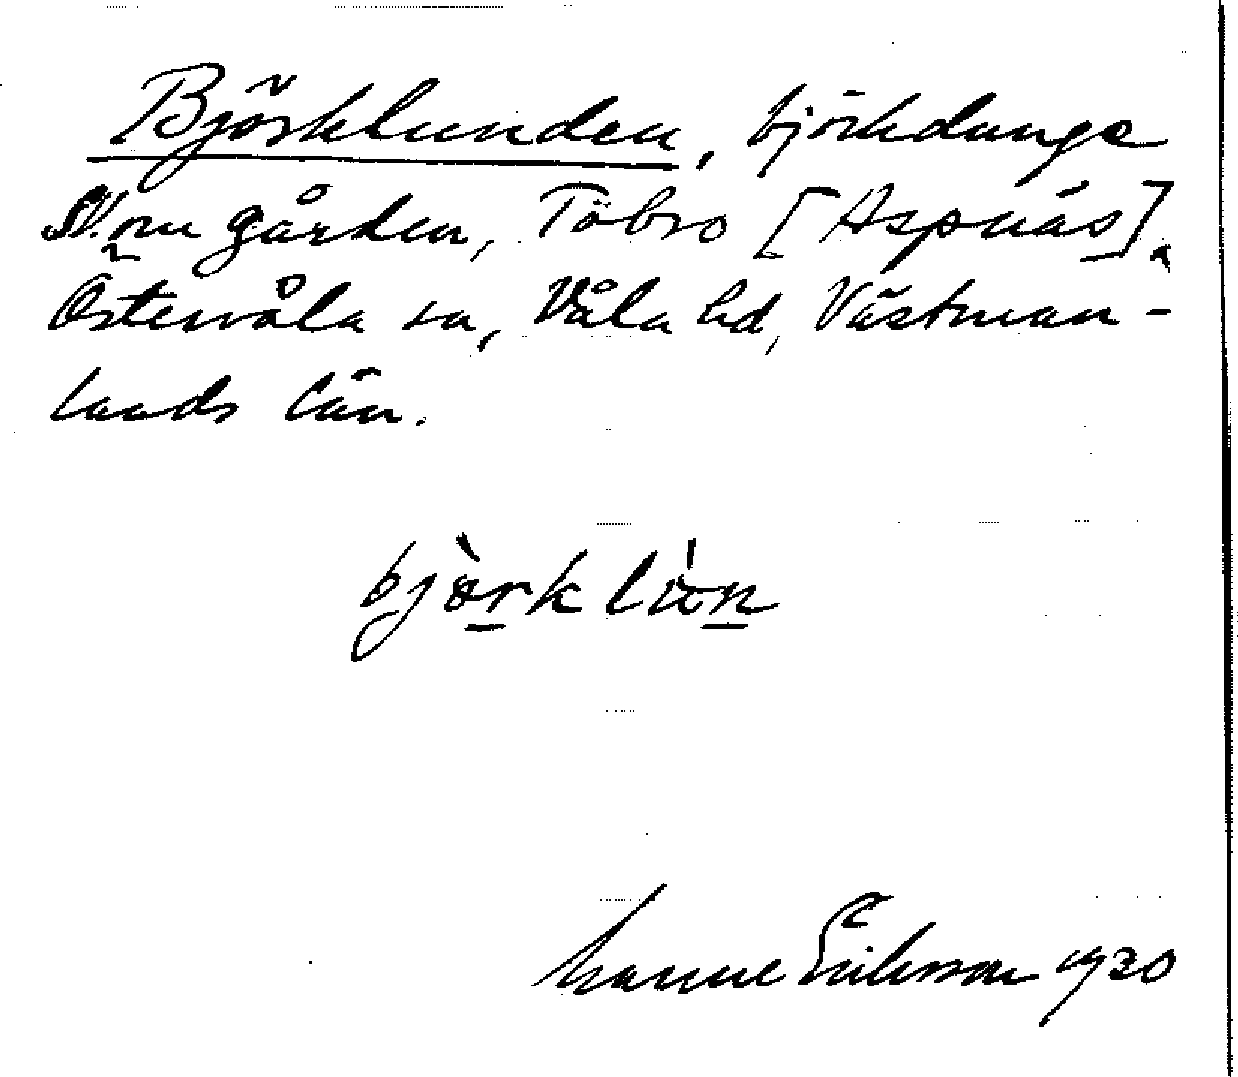 Björklunden, björkdunge
SV. om gården, Töbro [Aspnäs],
Östervåla sn, Våla hd, Västman-
lands län.
björklùn
Manne Eriksson 1920